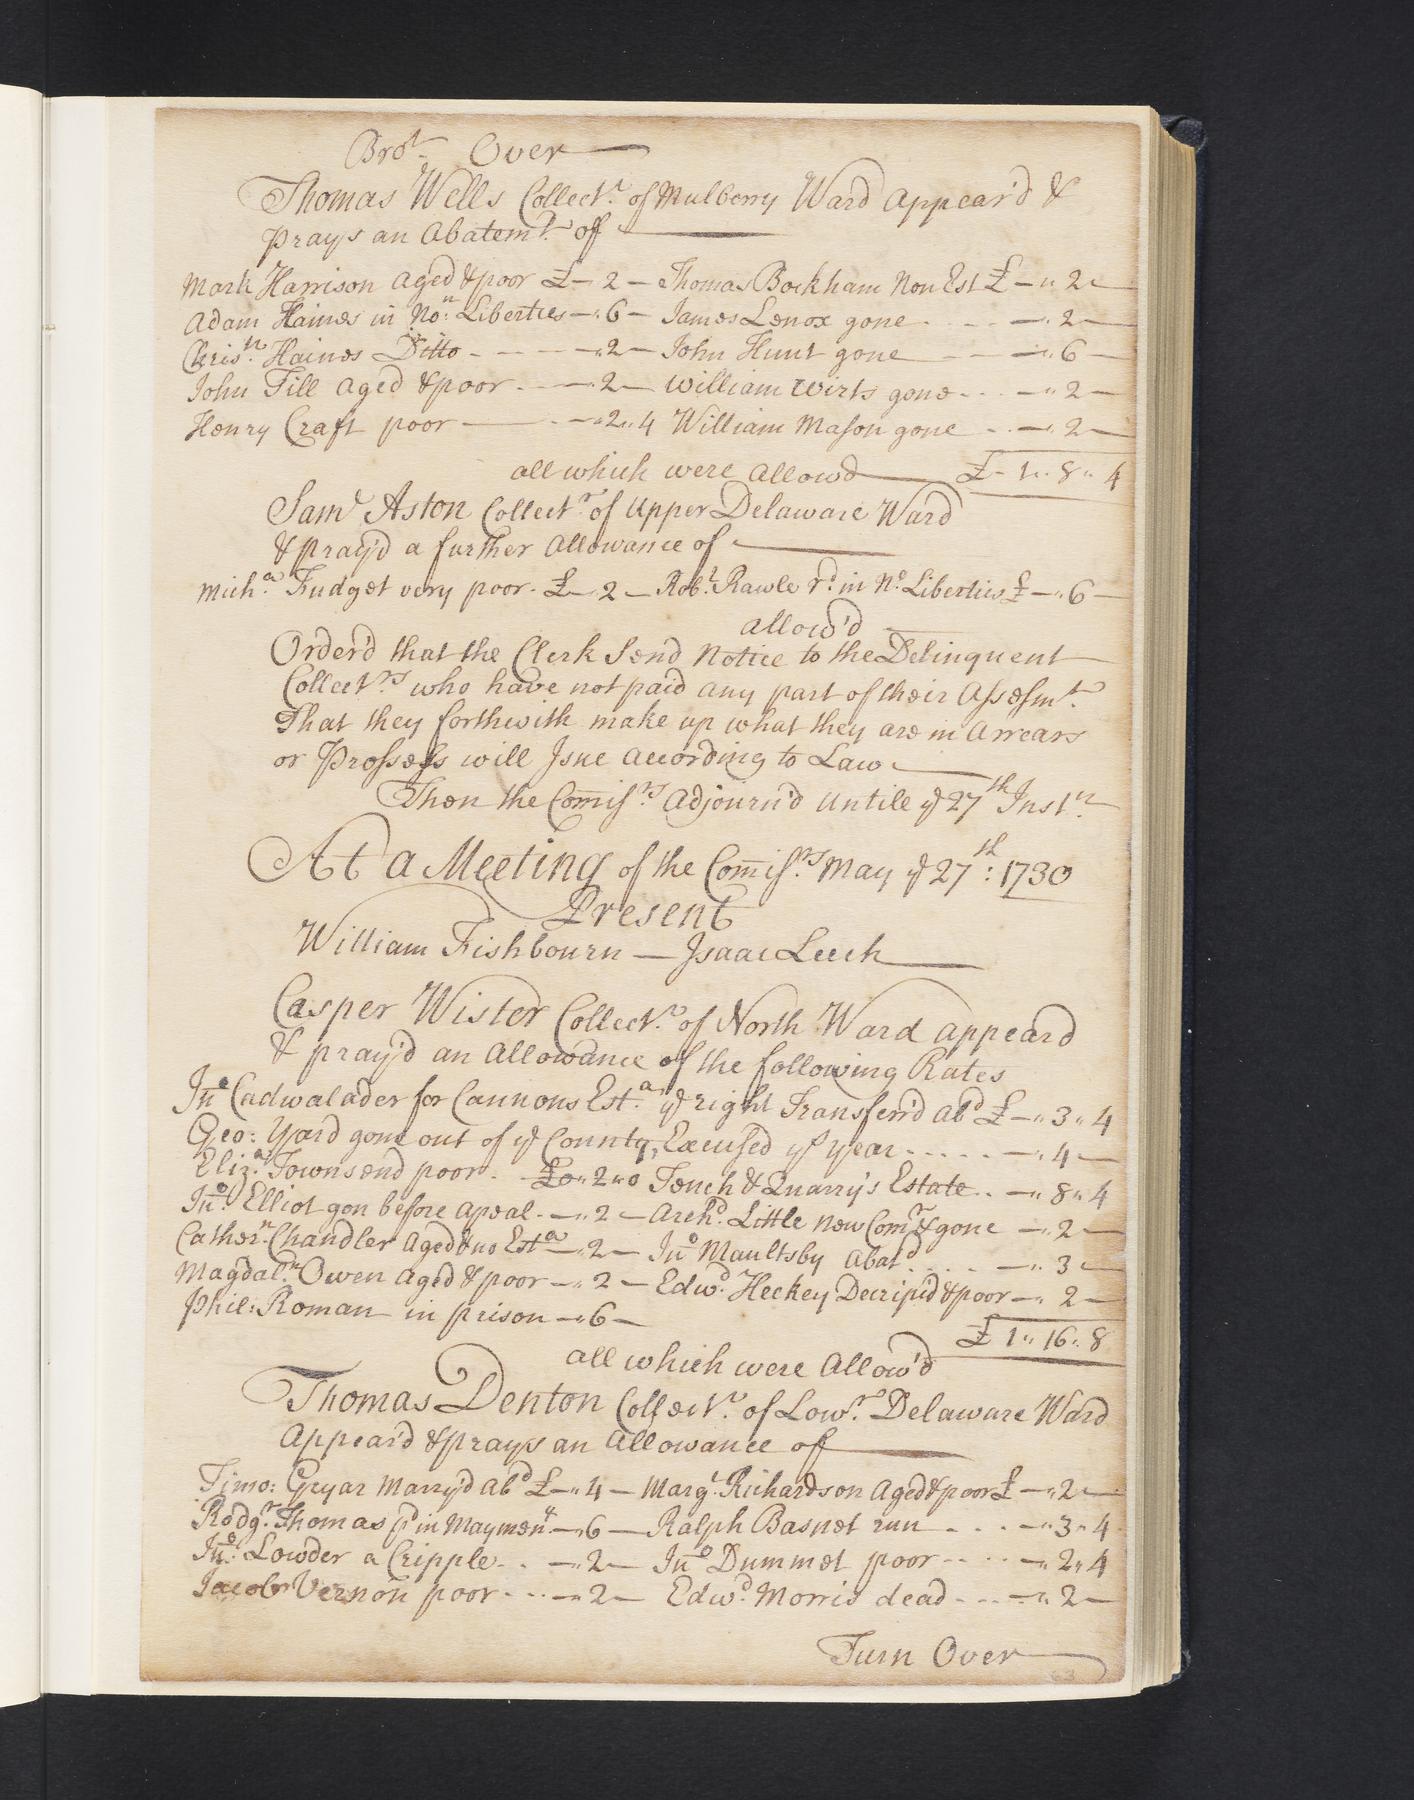 Bro.t Over
Thomas Wells Collect.r of Mulberry Ward appear'd &
prays an Abatem.t of
Mark Harrison aged & poor £ - 2 - Thomas Bockham Non Est £ - " 2 -
Adam Haines in No.n Liberties - " 6 - James Lenox gone - - - " 2 -
Chris.n Haines Ditto - - - " 2 - John Hunt gone - - - " 6 -
John Fill aged & poor - - - 2 - William Wirts gone - - - " 2 -
Henry Craft poor - - - " 2 " 4 William Mason gone - - - 2 -
all which were Allowd £ - 1 " 8 " 4
Sam.l Aston Collect.r of Upper Delaware Ward
& pray'd a further Allowance of
Mich.a Fudget very poor - £ - 2 - Rob.t Rawle r.d in No. Liberties £ - " 6 -
allow'd
Order'd that the Clerk Send Notice to the Delinquent
Collect.rs who have not paid any part of their Assesm.t
That they forthwith make up what they are in Arrears
or Prossess will Isue according to Law
Then the Comis.rs Adjourn'd Untile ye 27th Inst.n
At a Meeting of the Comis.rs May ye 27th : 1730
Present
William Fishbourn - Isaac Leech
Casper Wister Collect.r of North Ward appeard
& pray'd an Allowance of the following Rates
Jn.o Cadwalader for Cannons Est.a ye right Transferr'd ab.d £ - " 3 " 4
Geo: Yard gone out of ye County, Excused ys year - - - - " 4 -
Eliz.a Townsend poor - £0 " 2 " 0 Tench & Quarry's Estate - - " 8 " 4
Jn.o Elliot gon before apeal - - " 2 - Arch.d Little New Com.r & gone - " 2 -
Cather.n Chandler Aged & no Est.a - 2 - Jn.o Maultsby Abat.d - - - " 3 -
Magdal.n Owen Aged & poor - " 2 - Edw.d Heckey Decripid & poor - " 2 -
Phil: Roman in prison - " 6 -
£ 1 " 16 " 8
all which were Allow'd
Thomas Denton Collect.r of Low.r Delaware Ward
Appear'd & prays an Allowance of
Timo: Gryar Marry'd Ab.d £ - " 4 - Marg.t Richardson Aged & poor £ - " 2 -
Rodg.r Thomas p.d in Maymen.g - " 6 - Ralph Basnet run - - - " 3 " 4
Jn.o Lowder a Cripple - - " 2 - Jn.o Dummet poor - - - " 2 " 4
Jacob Vernon poor - - - " 2 - Edw.d Morris dead - - - " 2 -
Turn Over
63